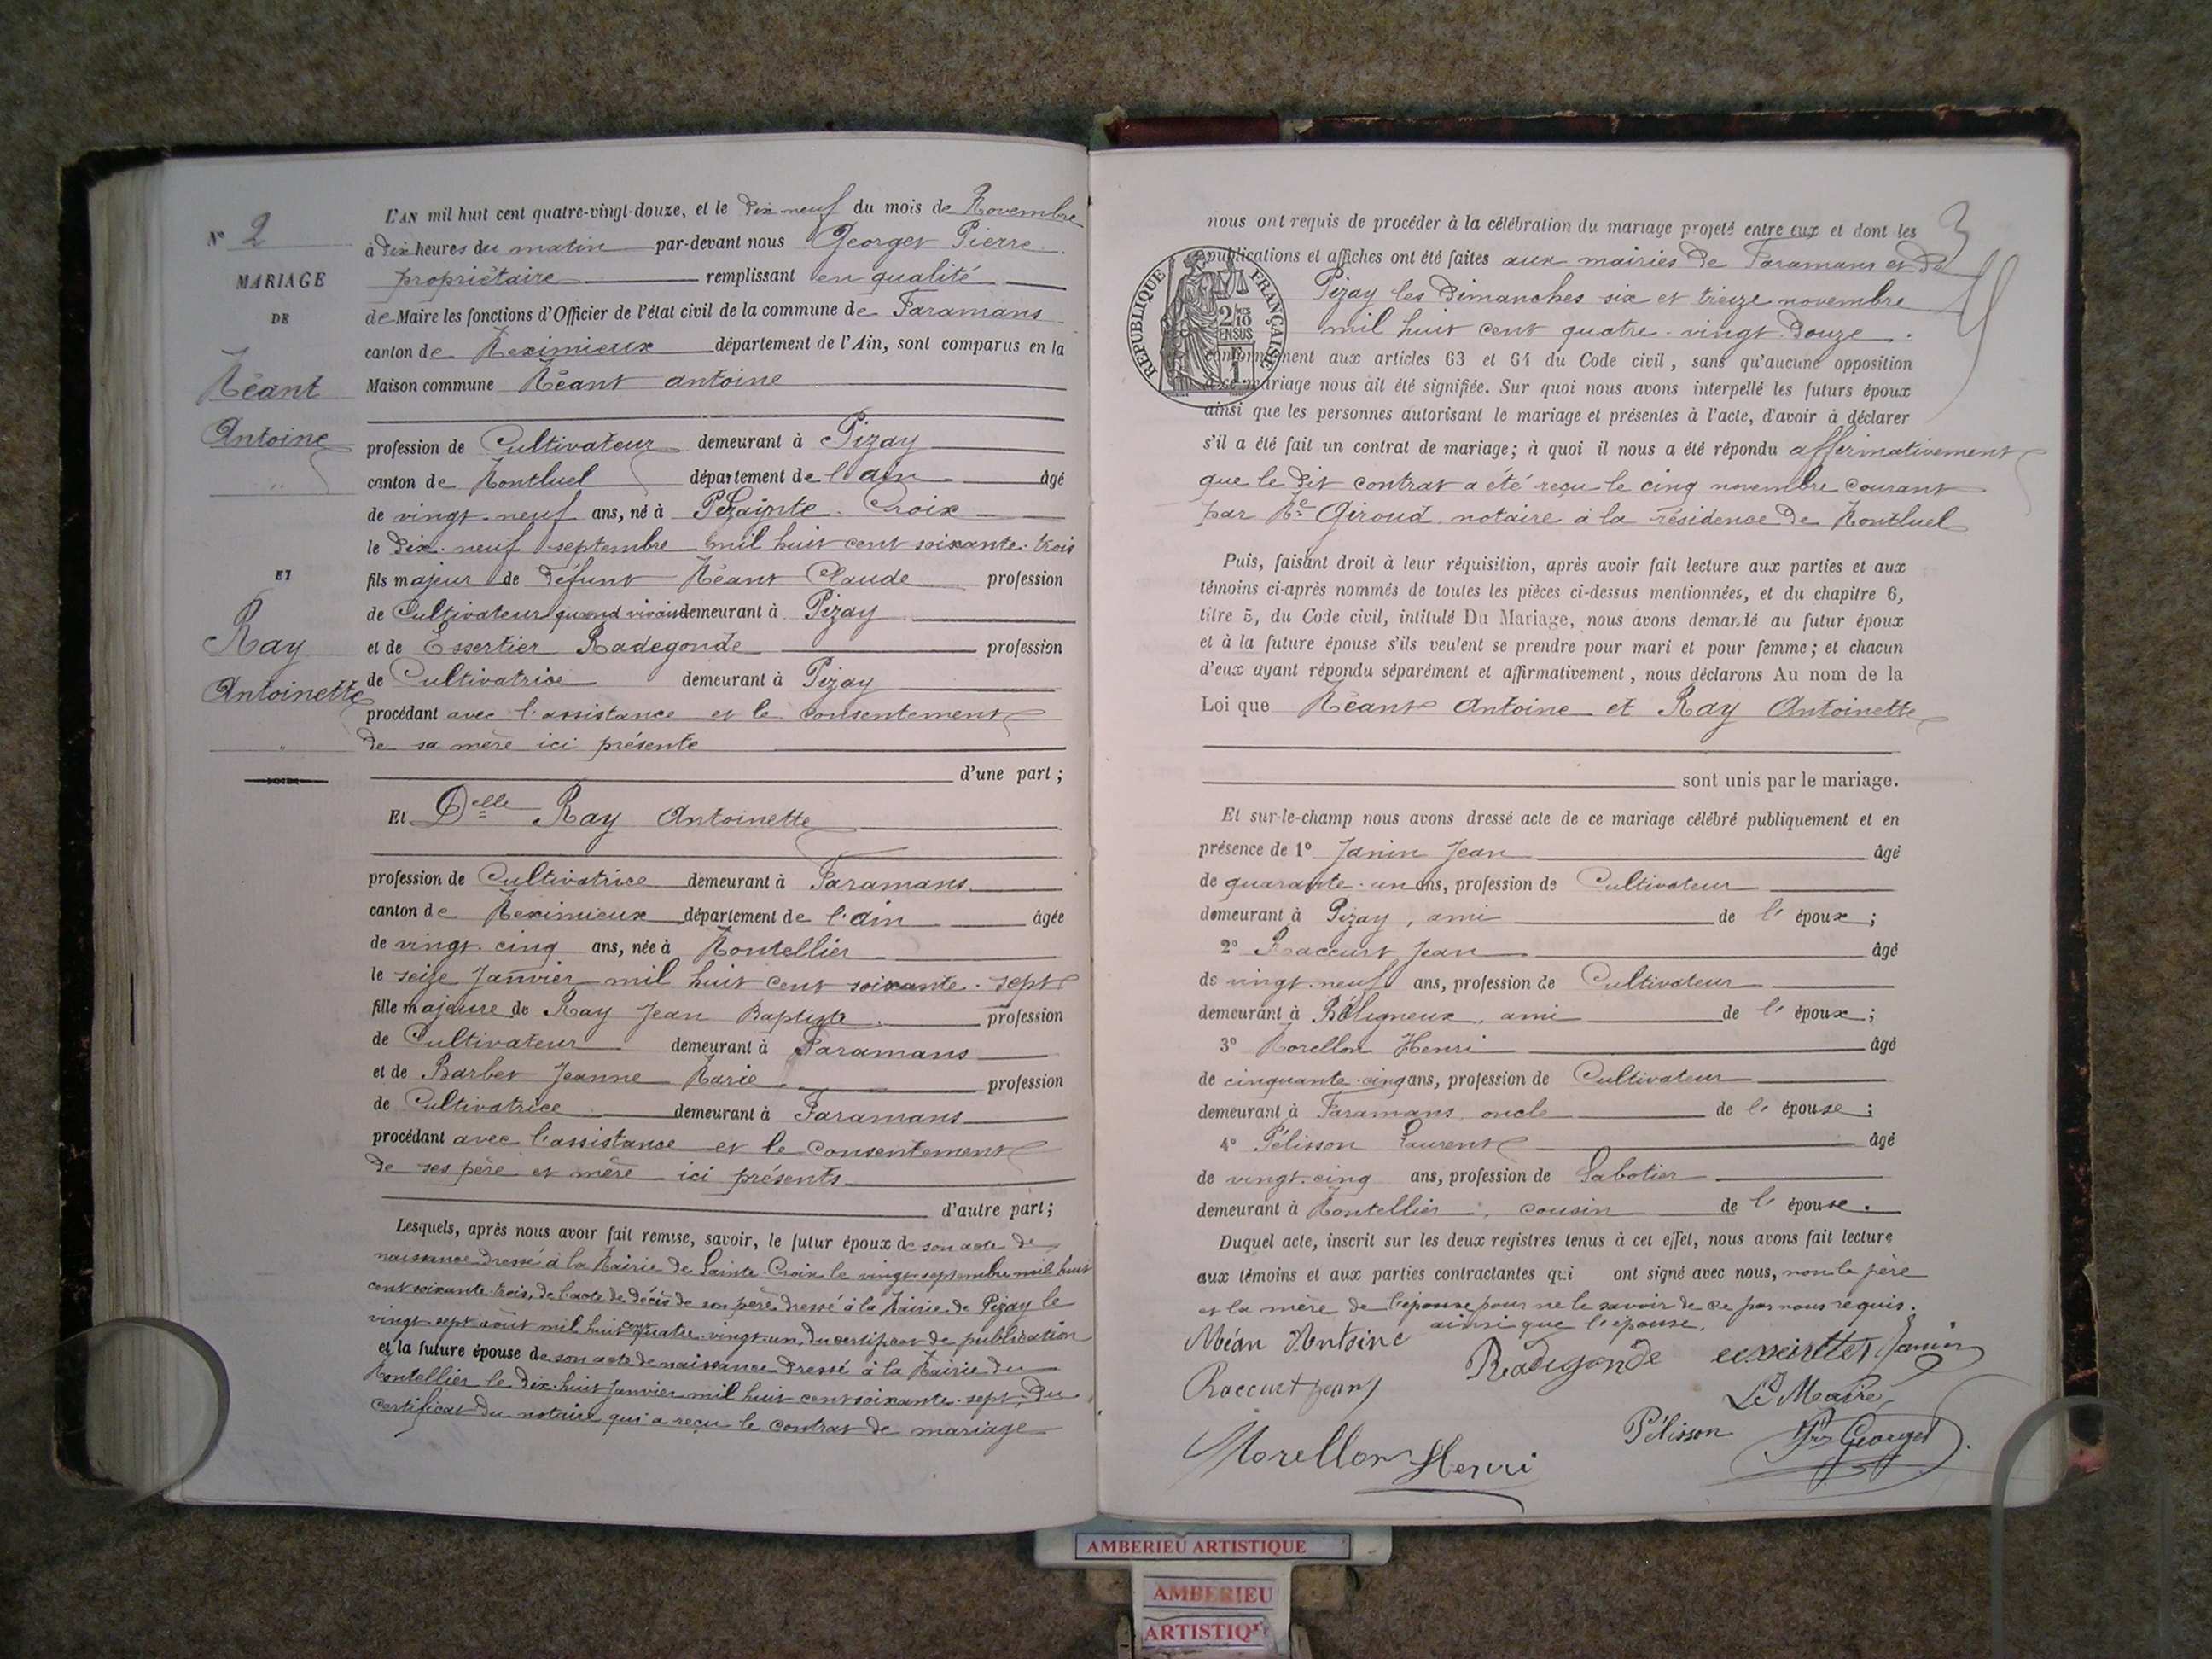 L'AN mil huit cent quatre-vingt-douze, et le dix neuf du mois de Novembre
à dix heures du matin par-devant nous Georget Pierre
propriétaire remplissant en qualité
de Maire les fonctions d'Officier de l'état civil de la commune de Faramans
canton de Meximieux département de l'Ain, sont comparus en la
Maison commune Méant antoine
profession de Cultivateur demeurant à Pizay
canton de Montluel département de l'ain âgé
de vingt-neuf ans, né à Sainte-Croix
le dix-neuf septembre mil huit cent soixante-trois
fils majeur de défunt Méant Claude profession
de Cultivateur quand vivait demeurant à Pizay
et de Essertier Radegonde profession
de Cultivatrice demeurant à Pizay
procédant avec l'assistance et le consentement
de sa mère ici présente
d'une part ;
Et Delle Ray Antoinette
profession de Cultivatrice demeurant à Faramans
canton de Meximieux département de l'ain âgée
de vingt-cinq ans, née à Montellier
le seize Janvier mil huit cent soixante-sept
fille majeure de Ray Jean Baptiste profession
de Cultivateur demeurant à Faramans
et de Barbet Jeanne Marie profession
de Cultivatrice demeurant à Faramans
procédant avec l'assistance et le consentement
de ses père et mère ici présents
d'autre part ;
Lesquels, après nous avoir fait remise, savoir, le futur époux de son acte de
naissance dressé à la Mairie de Sainte-Croix le vingt septembre mil huit
cent soixante-trois, de l'acte de décès de son père dressé à la Mairie de Pizay le
vingt-sept août mil huit cent quatre-vingt-un, du certificat de publication
et la future épouse de son acte de naissance dressé à la Mairie du
Montellier le dix-huit Janvier mil huit cent soixante-sept, du
certificat du notaire qui a reçu le contrat de mariage
N° 2
MARIAGE
DE
Méant
Antoine
ET
Ray
Antoinette
3
nous ont requis de procéder à la célébration du mariage projeté entre eux et dont les
publications et affiches ont été faites aux mairies de Faramans et de
Pizay les dimanches six et treize novembre
mil huit cent quatre-vingt-douze.
conformément aux articles 63 et 64 du Code civil, sans qu'aucune opposition
à ce mariage nous ait été signifiée. Sur quoi nous avons interpellé les futurs époux
ainsi que les personnes autorisant le mariage et présentes à l'acte, d'avoir à déclarer
s'il a été fait un contrat de mariage; à quoi il nous a été répondu affirmativement
que le dit contrat a été reçu le cinq novembre courant
par Me Giroud notaire à la résidence de Montluel
Puis, faisant droit à leur réquisition, après avoir fait lecture aux parties et aux
témoins ci-après nommés de toutes les pièces ci-dessus mentionnées, et du chapitre 6,
titre 5, du Code civil, intitulé Du Mariage, nous avons demandé au futur époux
et à la future épouse s'ils veulent se prendre pour mari et pour femme; et chacun
d'eux ayant répondu séparément et affirmativement, nous déclarons Au nom de la
Loi que Méant Antoine et Ray Antoinette
sont unis par le mariage.
Et sur-le-champ nous avons dressé acte de ce mariage célébré publiquement et en
présence de 1° Janin Jean âgé
de quarante-un ans, profession de Cultivateur
demeurant à Pizay, ami de l'époux ;
2° Raccurt Jean âgé
de vingt-neuf ans, profession de Cultivateur
demeurant à Béligneux, ami de l'époux ;
3° Morellon Henri âgé
de cinquante-cinq ans, profession de Cultivateur
demeurant à Faramans, oncle de l'épouse ;
4° Pélisson Laurent âgé
de vingt-cinq ans, profession de Sabotier
demeurant à Montellier, cousin de l'épouse.
Duquel acte, inscrit sur les deux registres tenus à cet effet, nous avons fait lecture
aux témoins et aux parties contractantes qui ont signé avec nous, non le père
et la mère de l'épouse pour ne le savoir de ce par nous requis.
ainsi que l'épouse.
Méan Antoine Radegonde essertier Janin
Raccurt Jean
Le Maire,
Pélisson Georget
Morellon Henri
RÉPUBLIQUE FRANÇAISE
2/10
EN SUS
1F
AMBERIEU ARTISTIQUE
AMBERIEU
ARTISTIQ